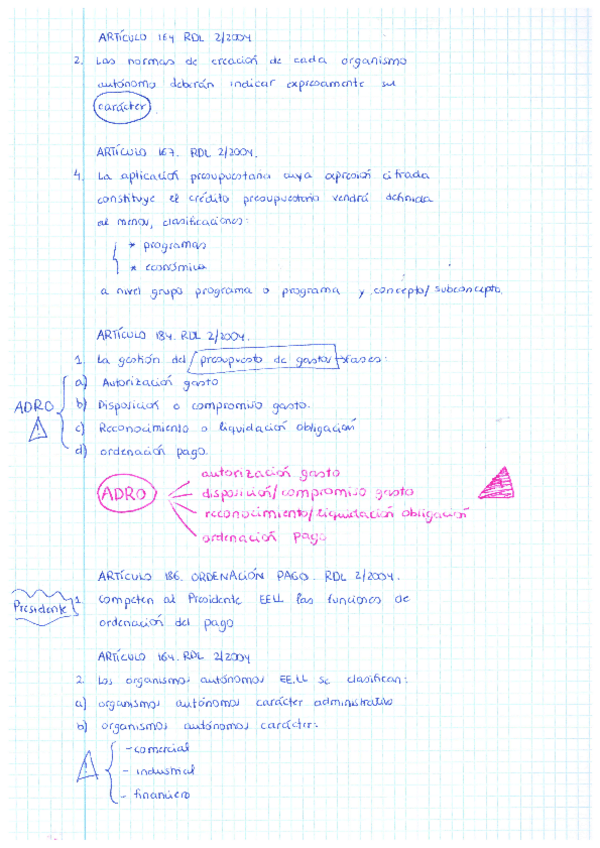 ARTÍCULO 164 RDL 2/2004
2. Las normas de creación de cada organismo
autónomo deberán indicar expresamente su
carácter.
ARTÍCULO 167. RDL 2/2004.
4. La aplicación presupuestaria cuya expresión cifrada
constituye el crédito presupuestario vendrá definida
al menos, clasificaciones:
* programas
* económica
a nivel grupo programa o programa y concepto/subconcepto.
ARTÍCULO 184. RDL 2/2004.
1. La gestión del presupuesto de gastos fases:
a) Autorización gasto
ADRO b) Disposición o compromiso gasto.
c) Reconocimiento o liquidación obligación
d) ordenación pago.
autorización gasto
ADRO disposición/compromiso gasto
reconocimiento/liquidación obligación
ordenación pago
ARTÍCULO 186. ORDENACIÓN PAGO. RDL 2/2004.
Presidente 1. competen al Presidente EELL las funciones de
ordenación del pago
ARTÍCULO 164. RDL 2/2004
2. Los organismos autónomos EE.LL se clasifican:
a) organismos autónomos carácter administrativo
b) organismos autónomos carácter:
- comercial
- industrial
- financiero